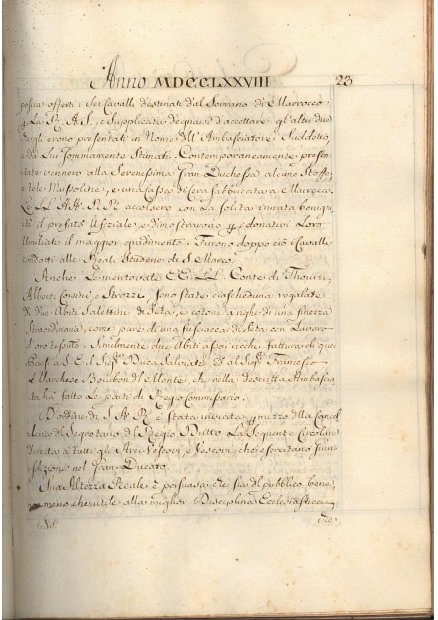 Anno MDCCLXXVIII 23
poscia offerti i Sei Cavalli destinati dal Sovrano di Marrocco
a S. A. R., e Supplicata degnarsi d'accettare gl'altri due
che gli erono presentati in Nome dell'Ambasciatore Suddetto,
e da Lui Sommamente Stimati. Contemporaneamente presen-
tate vennero alla Serenissima Gran Duchessa alcune Stoffe,
e tele Mussoline, e una Cassa di Cera fabbricata a Murocco.
e LL. AA. RR. accolsero con la Solita innata benigni-
tà il prefato Ufiziale, e dimostravono i donativi Loro
Umiliati il maggior gradimento. Furono doppo ciò i Cavalli
condotti alle Reali Scuderie di S. Marco.
Anche Le mentovate EE. LL. Conte di Thourn,
Alberti, Corsini, e Strozzi, Sono State ciascheduna regalate
di due Abiti Salettini di Seta, e cotone a righe di una finezza
Straordinaria, come pure di una fusciacca di Seta con Lavoro
d'oro tessuto. Similmente due Abiti assai ricchi fattura di quei
Paesi a S. E. il Sig.r Duca Salviati, e al Sig.r Francesco
e Marchese Bourbon del Monte, che nella descritta Ambascia-
ta ha fatto Le parti di Regio Commissario.
D'ordine di S. A. R. è Stata inviata, per mezzo della Cancel-
leria del Segretario del Regio Dritto La Seguente Circolare
diretta a tutti gli Arcivescovi, e Vescovi, che esercitano Giuri-
sdizione nel Gran-Ducato.
Sua Altezza Reale è persuasa, che Sia del pubblico bene,
non meno che utile alla miglior Disciplina Ecclesiastica,
che